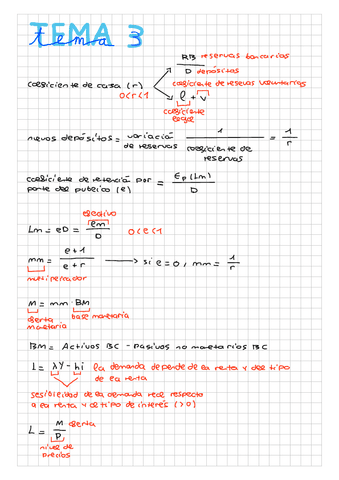 TEMA 3
tema 3
RB reservas bancarias
D depósitos
coeficiente de caja (r)
0<r<1
coeficiente de reservas voluntarias
l + v
coeficiente legal
nuevos depósitos = variación de reservas 1 / coeficiente de reservas = 1 / r
coeficiente de retención por parte del público (e) = Ep (Lm) / D
efectivo
Lm = eD = em / D 0<e<1
mm = e+1 / e+r → si e=0, mm = 1 / r
multiplicador
M = mm · BM
oferta monetaria
base monetaria
BM = Activos BC - Pasivos no monetarios BC
L = λY - hi la demanda depende de la renta y del tipo de la renta
sesibilidad de la demanda real respecto a la renta y al tipo de interés (>0)
L = M / P oferta
nivel de precios